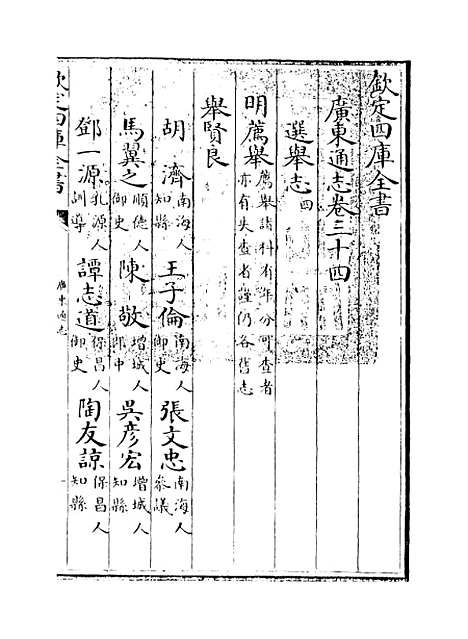 欽定四庫全書
廣東通志卷三十四
選舉志四
明薦舉薦舉諸科有年分可查者
亦有失查者謹仍各舊志
舉賢良
胡濟南海人知縣 王子倫南海人御史 張文忠南海人參議
馬翼之順德人御史 陳敬增城人郎中 吳彦宏增城人知縣
鄧一源乳源人訓導 譚志道保昌人御史 陶友諒保昌人知縣
欽定四庫全書
廣東通志